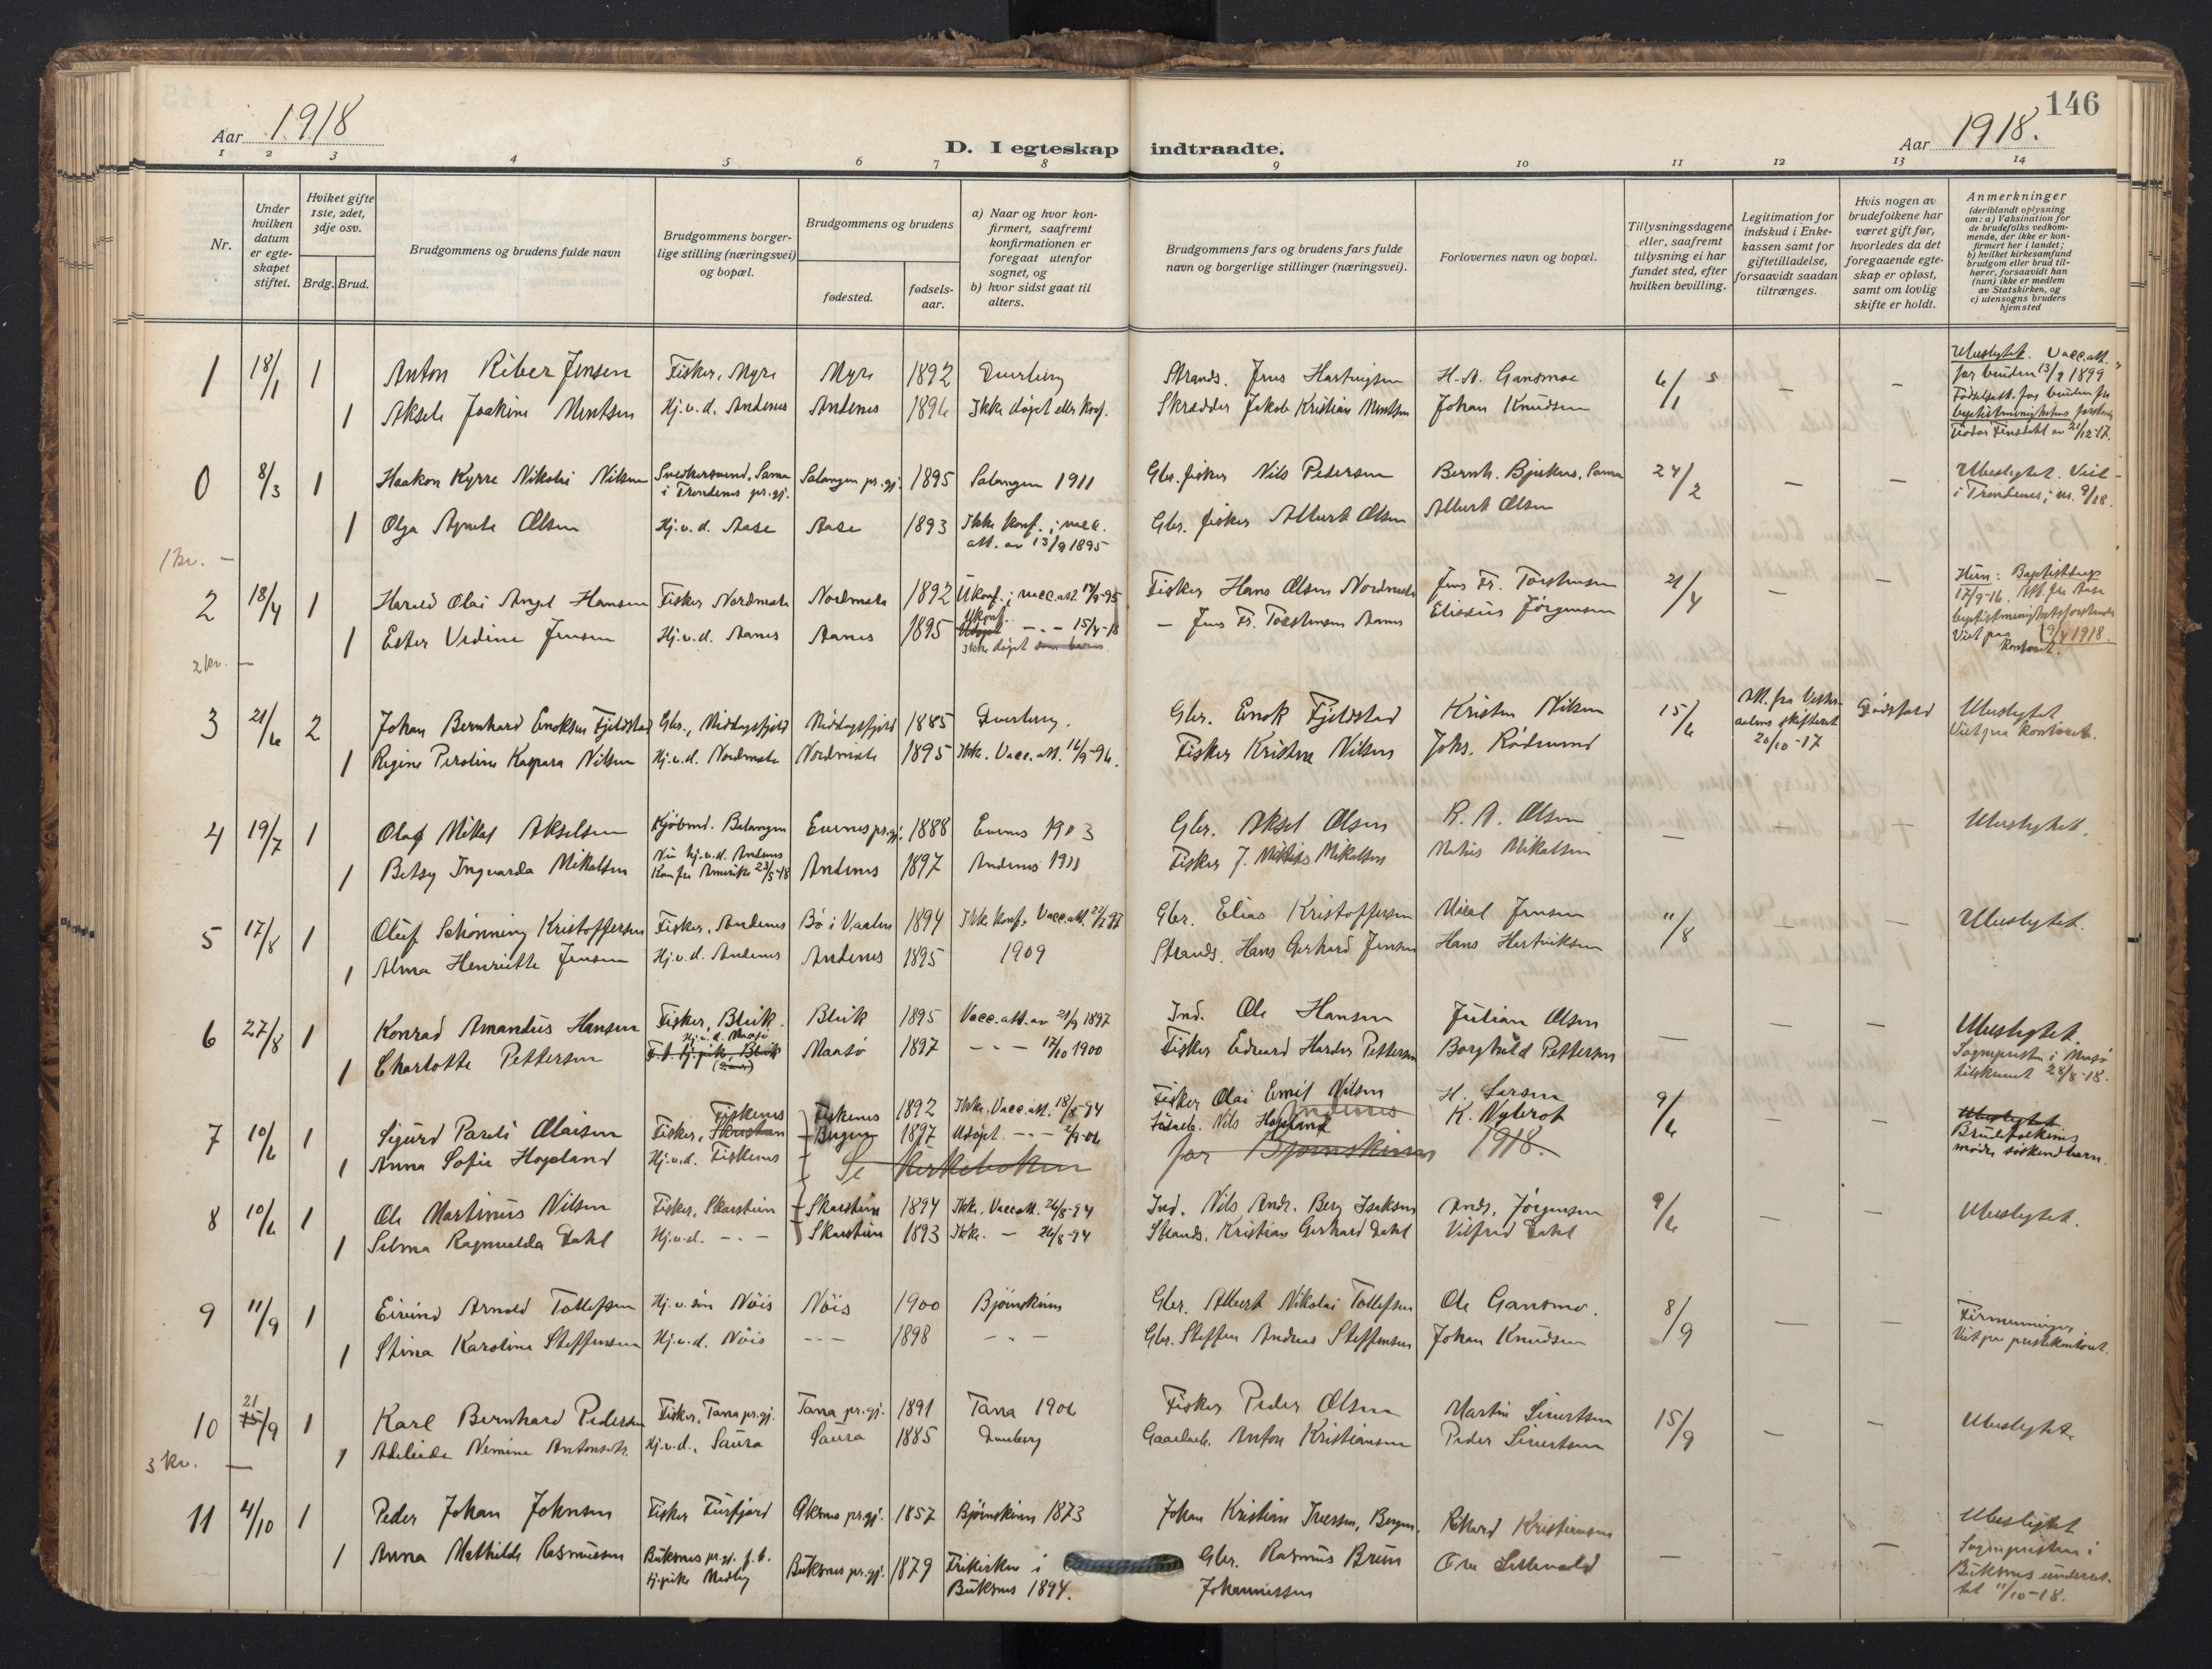 146
Aar 1918
D. I egteskap indtraadte.
Aar 1918.
1 2 3 4 5 6 7 8 9 10 11 12 13 14
Nr.
Under hvilken datum er egteskapet stiftet.
Hviket gifte 1ste, 2det, 3dje osv.
Brdg. Brud.
Brudgommens og brudens fulde navn
Brudgommens borgerlige stilling (næringsvei) og bopæl.
Brudgommens og brudens
fødested.
fødselsaar.
a) Naar og hvor konfirmert, saafremt konfirmationen er foregaat utenfor sognet, og
b) hvor sidst gaat til alters.
Brudgommens fars og brudens fars fulde navn og borgerlige stillinger (næringsvei).
Forlovernes navn og bopæl.
Tillysningsdagene eller, saafremt tullysning ei har fundet sted, efter hvilken bevilling.
Legitimation for indskud i Enkekassen samt for giftetilladelse, forsaavidt saadan tiltrænges.
Hvis nogen av brudefolkene har været gift før, hvorledes da det foregaaende egteskap er opløst, samt om lovlig skifte er holdt.
Anmerkninger (deriblandt oplysning om: a) Vaksination for de brudefolks vedkommende, der ikke er konfirmert her i landet; b) hvilket kirkesamfund brudgom eller brud tilhører, forsaavidt han (hun) ikke er medlem av Statskirken, og c) utensogns bruders hjemsted
1 18/1 1 Anton Riber Jensen Fisker, Myre Myre 1892 Dverberg Strands. Jens Hartvigsen H. A. Gansmoe 6/1 – – Ubeslegtet. Vacc.att. for bruden 13/9 1899
1 Aksele Joakime Mentsen Hj.v.d. Andenes Andenes 1896 Ikke døpt eller konf. Skrædder Jakob Kristian Mentsen Johan Knudsen Fødselsatt. for bruden fra
0 8/3 1 Haakon Kyrre Nikolai Nilsen Snedkersvend, Sama i Trondenes pr.gj. Salangen pr.gj. 1895 Salangen 1911 Gbr. fisker Nils Pedersen 24/2 – – Ubeslegtet. Viet i Trondenes; nr. 9/18.
1 Olga Agnete Olsen Hj.v.d. Aase Aase 1893 Ikke konf.; vacc. att. av 13/9 1895 Gbr. fisker Albert Olsen Albert Olsen
1 kv. –
2 18/4 1 Harald Olai Angel Hansen Fisker Nordmela Nordmela 1892 Ukonf.; vacc.att. 17/9-95 Fisker Hans Olsen Nordmela Jens Fr. Torstensen 21/4 – – Hun: Baptistdøp 17/9-16. Att. fra Aase
1 Ester Vedine Jensen Hj.v.d. Aanes Aanes 1895 Ukonf. – " – 15/4-18 Ikke døpt som barn. – Jens Fr. Torstensen Aanes Elisæus Jørgensen Viet paa kontoret. 19/4 1918
2 kv. –
3 21/6 2 Johan Bernhard Enoksen Fjeldstad Gbr., Middagsfjeld Middagsfjeld 1885 Dverberg. Gbr. Enok Fjeldstad Kristen Nilsen 15/6 Att. fra Vesteraalens skifteret 20/10-17 Dødsfald Ubeslegtet Viet paa kontoret.
1 Regine Peroline Kaspara Nilsen Hj.v.d. Nordmela Nordmela 1895 Ikke. Vacc. att. 16/9-96. Fisker Kristen Nilsen Johs. Rødsand
4 19/7 1 Olaf Mikal Akselsen Kjøbmd. Balangen Evenes pr.gj. 1888 Evenes 1903 Gbr. Aksel Olsen R. A. Olsen – – – Ubeslegtet.
1 Betsy Ingvarda Mikalsen Nu hj.v.d. Andenes Kom fra Amerika 23/5-18 Andenes 1897 Andenes 1911 Fisker J. Mikalsen Mikalsen
5 17/8 1 Oluf Schønning Kristoffersen Fisker, Andenes Bø i V.aalen 1894 Ikke konf. Vacc.att. 22/7 97 Gbr. Elias Kristoffersen Jensen 11/8 – – Ubeslegtet.
1 Alma Henriette Jensen Hj.v.d. Andenes Andenes 1895 1909 Strands. Hans Gerhard Jensen Hans Hartviksen
6 27/8 1 Konrad Amandus Hansen Fisker, Bleik. Bleik 1895 Vacc.att. av 21/9 1897 Ind. Ole Hansen Julian Olsen – – – Ubeslegtet.
1 Charlotte Pettersen Hj.v.d. Maasø Maasø 1897 – " – 17/10 1900 Fisker Edvard Harder Pettersen Borghild Pettersen Sognepresten i Maasø tilskrevet 28/8-18.
7 10/6 1 Sigurd Pareli Olaisen Fisker, Skarstein Fiskenes Fiskenes 1892 Ikke. Vacc.att. 18/8-94 Fisker Olai Emil Nilsen H. Larsen 9/6 – – Ubeslegtet Brudefolkenes mødre søskendbarn.
1 Anna Sofie Hopland Hj.v.d. Fiskenes Bergen 1897 Udøpt. – " – 2/9-06 Nils Hopland K. Nybrot
Se kirkeboken for Bjørnskinn Andenes 1918.
8 10/6 1 Ole Martinus Nilsen Fisker, Skarstein Skarstein 1894 Ikke. Vacc.att. 26/8-94 Ind. Nils Andr. Berg Isaksen Andr. Jørgensen 9/6 – – Ubeslegtet.
1 Selma Ragnvalda Dahl Hj.v.d. – " – Skarstein 1893 Ikke. – 26/8-94 Strands. Kristian Gerhard Dahl Vilfred Dahl
9 11/9 1 Eivind Arnold Tollefsen Hj.v.søn Nøis Nøis 1900 Bjørnskinn Gbr. Albert Nikolai Tollefsen Ole Gansmo. 8/9 – – Firmenninger Viet paa prestekontoret.
1 Stina Karoline Steffensen Hj.v.d. Nøis – " – 1898 – " – Gbr. Steffen Andreas Steffensen Johan Knudsen
10 15/9 21 1 Karl Bernhard Pedersen Fisker, Tana pr.gj. Tana pr.gj. 1891 Tana 1906 Fisker Peder Olsen Martin Sivertsen 15/9 – – Ubeslegtet
1 Adeleide Nemine Antonsdtr. Hj.v.d. Saura Saura 1885 Dverberg Gaardarb. Anton Kristiansen Peder Sivertsen
3 kv. –
11 4/10 1 Peder Johan Johnsen Fisker Fusfjord pr.gj. 1857 Bjørnskinn 1873 Johan Kristian Iversen, Bergen. Rikard Kristiansen – – – Ubeslegtet
1 Anna Mathilde Rasmussen Buksnes pr.gj. f.t. tj.pike Medby Buksnes pr.gj. 1879 Frikirken i Buksnes 1894. Gbr. Rasmus Bruun Johannessen Sognepresten i Buksnes underrettet 11/10-18.